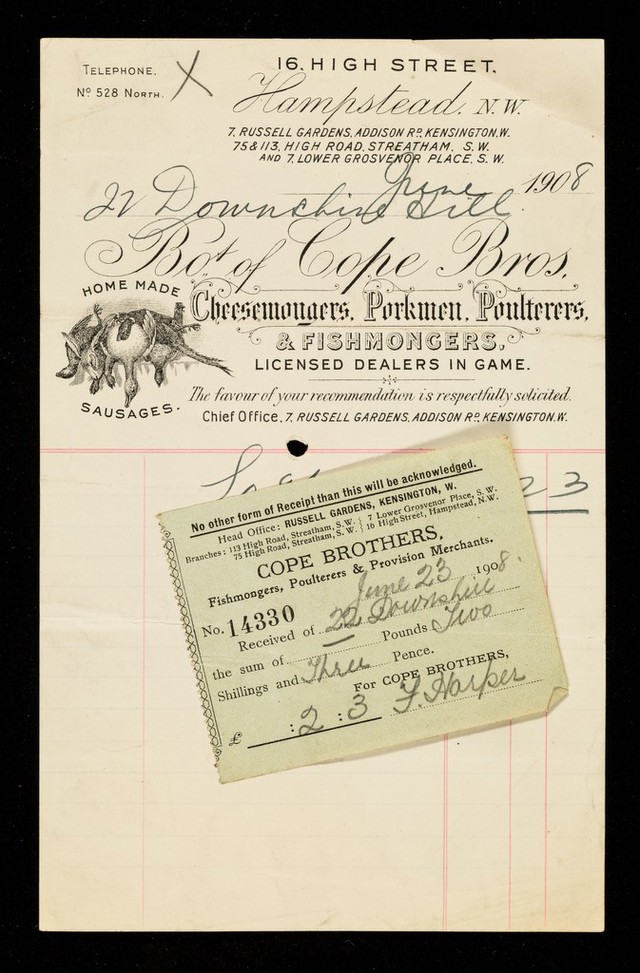 TELEPHONE.
No 528 NORTH.
X
16, HIGH STREET,
Hampstead, N.W.
7, RUSSELL GARDENS, ADDISON RD, KENSINGTON, W.
75 & 113, HIGH ROAD, STREATHAM, S.W.
AND 7, LOWER GROSVENOR PLACE, S.W.
June 1908
22 Downshire Hill
Bot. of Cope Bros.
HOME MADE
SAUSAGES.
Cheesemongers, Porkmen, Poulterers,
& FISHMONGERS,
LICENSED DEALERS IN GAME.
The favour of your recommendation is respectfully solicited.
Chief Office, 7, RUSSELL GARDENS, ADDISON RD, KENSINGTON, W.
23
No other form of Receipt than this will be acknowledged.
Head Office: RUSSELL GARDENS, KENSINGTON, W.
Branches: 113 High Road, Streatham, S.W. 7 Lower Grosvenor Place, S.W.
75 High Road, Streatham, S.W. 16 High Street, Hampstead, N.W.
COPE BROTHERS,
Fishmongers, Poulterers & Provision Merchants.
June 23 1908.
No. 14330
Received of 22 Downshill
the sum of Pounds Two
Shillings and Three Pence.
For COPE BROTHERS,
£ : 2 : 3 F. Harper